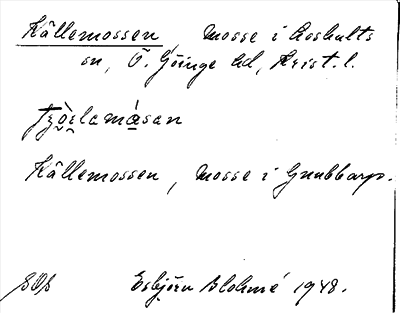 Källemossen, Mosse i Oshults
sn, Ö. Göinge hd, Krist. l.
Källemossen, mosse i Gnubbarp.
Esbjörn Blohmé 1948.